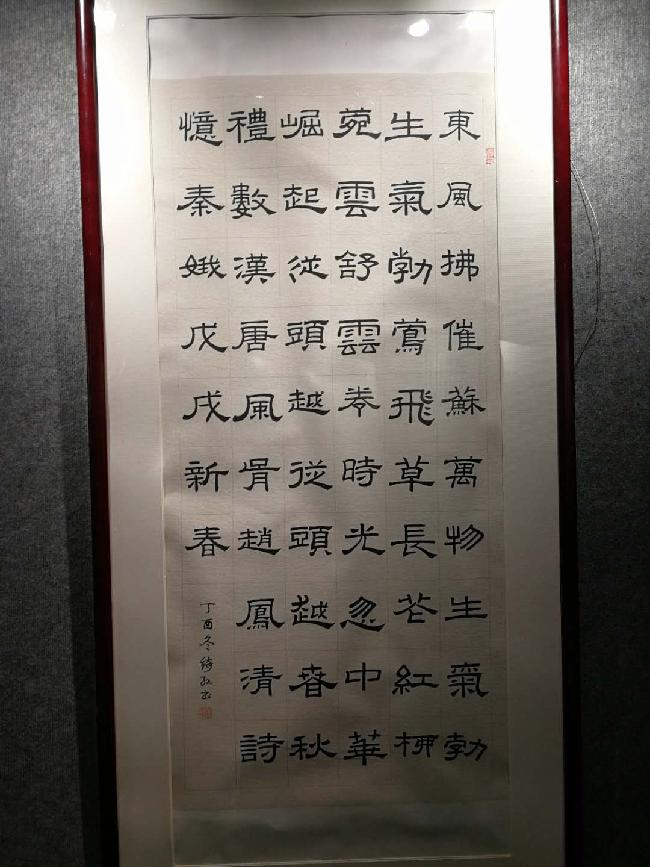 東風拂催蘇萬物生氣勃
生氣勃鶯飛草長花紅柳
菀雲舒雲卷時光忽中華
崛起從頭越從頭越春秋
禮數漢唐風骨趙鳳清詩
憶秦娥戊戌新春
丁酉冬